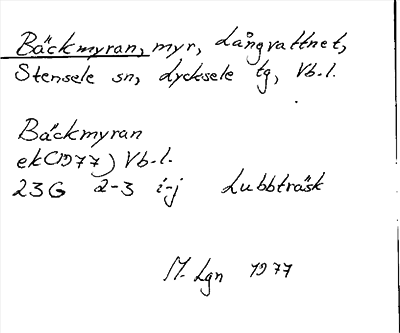 Bäckmyran, myr, Långvattnet,
Stensele sn, Lycksele tg, Vb.l.
Bäckmyran
ek(1977) Vb-l.
23G 2-3 i-j Lubbträsk
M. Lgn 1977